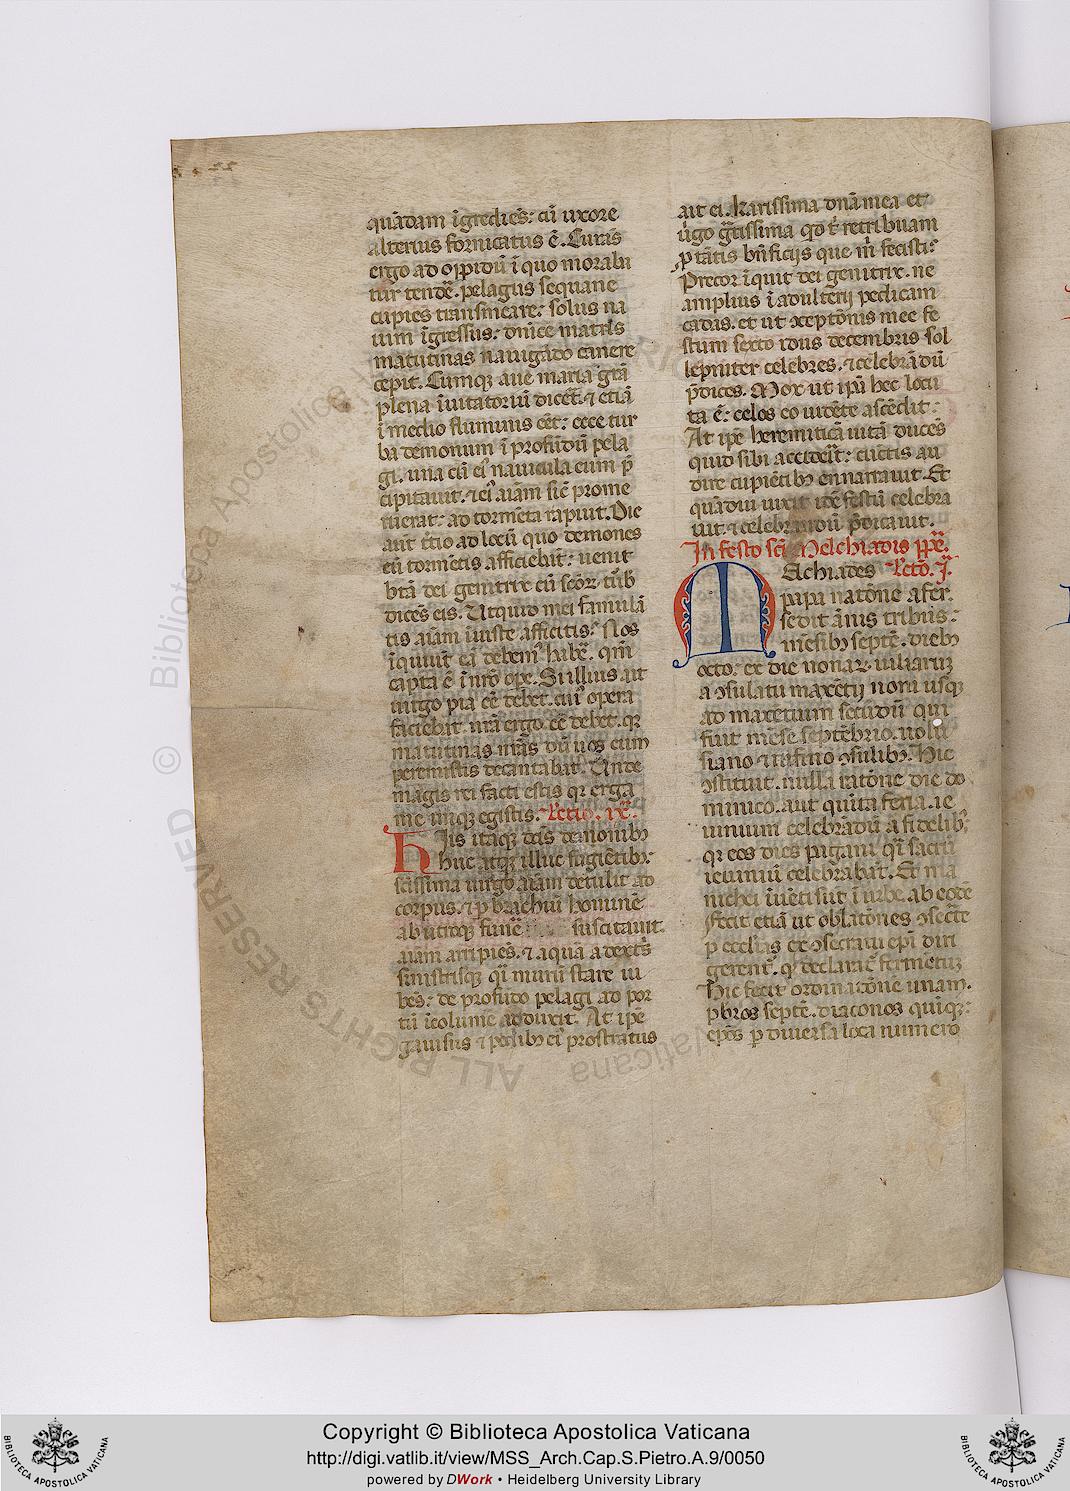 quādam īgrediēs: cū uxore
alterius fornicatus ē. Curās
ergo ad oppidū ī quo moraba
tur tendē. pelagus sequane
cupiēs transmeare: solus na
uim īgressus: dnīce matris
matutinas nauigādo canere
cepit. Cumqz aue maria grā
plena īuitatoriū dicēt. ⁊ etiā
ī medio fluminis cēt: ecce tur
ba demonum ī profūdū pela
gi. una cū ei nauicula eum p̄
cipitauit. ⁊ ei aiām sic̄ prome
ruerat: ad tormēta rapiut. Die
aut̄ t̄tio ad locū quo demones
eū tormētis afficiebāt: uenit
btā dei genitrix cū scōꝝ tūb
dicēs eis. Utquid mei famulā
tis aiam īuiste afficitis? Nos
īquiūt eā debem hr̄e. qm̄
capta ē ī nr̄o ope. Si illius ait
uirgo pia cē debet. cui opera
faciebāt. ur̄a ergo. cē debet. qr
matutinas mr̄as dū uos eum
peremistis decantabat. Unde
magis rei facti estis qr erga
me iniqz egistis. Lectio. ix.
His itaqz dc̄is demonibz
huc atqz illuc fugiētibz.
sc̄issima uirgo aiam detulit ad
corpus. ⁊ p brachiū hominē
ab utroqz funē suscitauit.
uiam arripiēs. ⁊ aquā a dextris
sinistrisqz qi murū stare iu
bēs: de profūdo pelagi ad por
tū īcolumē adduxit. At ipē
gauisus ⁊ pedibz ei prostratus
ait ei. karissima dnā mea et
uirgo gr̄atissima qd t̄ retribuam
p tātis bn̄ficijs que m̄ fecisti?
Precor īquit dei genitrix. ne
amplius ī adulterij pedicam
cadas. et ut ɔxeptōnis mee fe
stum sexto idus decembris sol
lepniter celebres. ⁊ celebrādū
p̄dices. Mox ut ip̄a hec locu
ta ē: celos eo uidēte ascēdit:
At ipē heremiticā uitā ducēs
quid sibi acciderit: cūctis au
dire cupiētibz ennarrauit. Et
quādiu uixit idē festū celebra
uit. ⁊ celebrandū p̄dicauit.
In festo scī Melchiadis pp̄e.
Melchiades Lectō. j.
papa natōne afer.
sedit ānis tribus:
mēsibz septē. diebz
octo. ex die nonaꝝ iuliarum
a ɔsulatu maxētij noni usqz
ad maxētium secūdū qui
fuit mēse septēbrio. uolu
siano ⁊ rufino ɔsulibz. Hic
ɔstituit. nulla ratōne die do
minico. aut quīta feria. ie
iunium celebrādū a fidelibz:
qr eos dies pagani qi sacrū
ieiuniū celebrabāt. Et ma
nichei īuēti sūt ī urbe. ab eodē
fecit etiā ut oblatōnes ɔsecrate
p ecclias ex ɔsecratu epi diri
gerent. qd declarat fermētum
Hic fecit ordinatōne unam.
pbros septē. diaconos quīqz:
ep̄os p diuersa loca numero
Copyright © Biblioteca Apostolica Vaticana
http://digi.vatlib.it/view/MSS_Arch.Cap.S.Pietro.A.9/0050
powered by DWork • Heidelberg University Library
BIBLIOTECA APOSTOLICA VATICANA
BIBLIOTECA APOSTOLICA VATICANA
© Biblioteca Apostolica Vaticana
ALL RIGHTS RESERVED